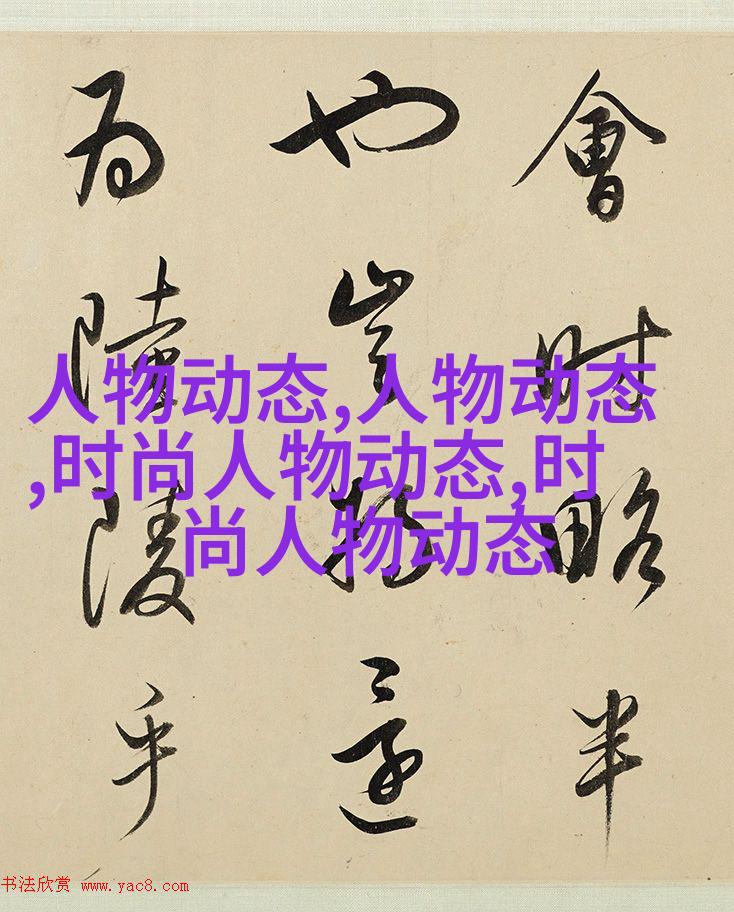 會時略半
也豈
為陵乎
人物动态,人物动态
,时尚人物动态,时
尚人物动态
书法欣赏 www.yac8.com